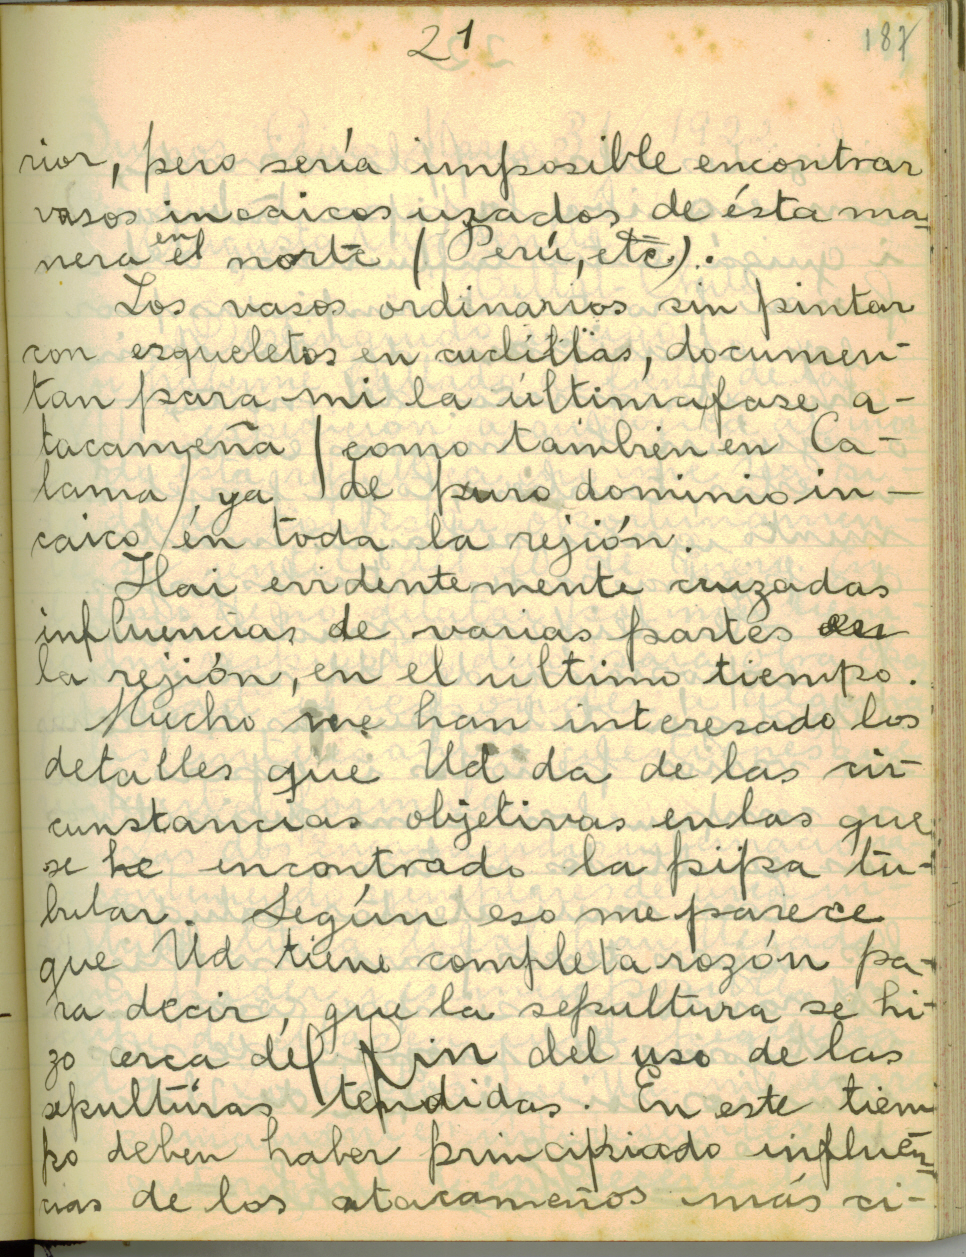 21
187
rior, pero sería imposible encontrar
vasos incaicos uzados de ésta ma-
nera en el norte (Perú, etc.).
Los vasos ordinarios sin pintar
con esqueletos en cuclillas, documen-
tan para mi la última fase a-
tacameña (como también en Ca-
lama), ya de puro dominio in-
caico en toda la rejión.
Hai evidentemente cruzadas
influencias de varias partes en
la rejión, en el último tiempo.
Mucho me han interesado los
detalles que Ud da de las cir-
cunstancias objetivas en las que
se he encontrado la pipa tu-
bular. Según eso me parece
que Ud tiene completa rozón pa-
ra decir, que la sepultura se hi-
zo cerca del fin del uso de las
sepultúras tendidas. En este tiem-
po deben haber principiado influen-
cias de los atacameños más ci-